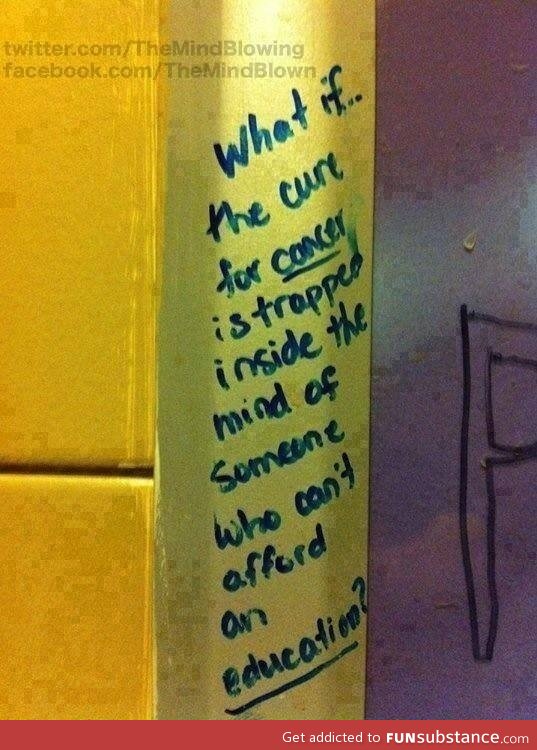 twitter.com/TheMindBlowing
facebook.com/TheMindBlown
What if...
the cure
for cancer
is trapped
inside the
mind of
someone
who can't
afford
an
education?
P
Get addicted to FUNsubstance.com